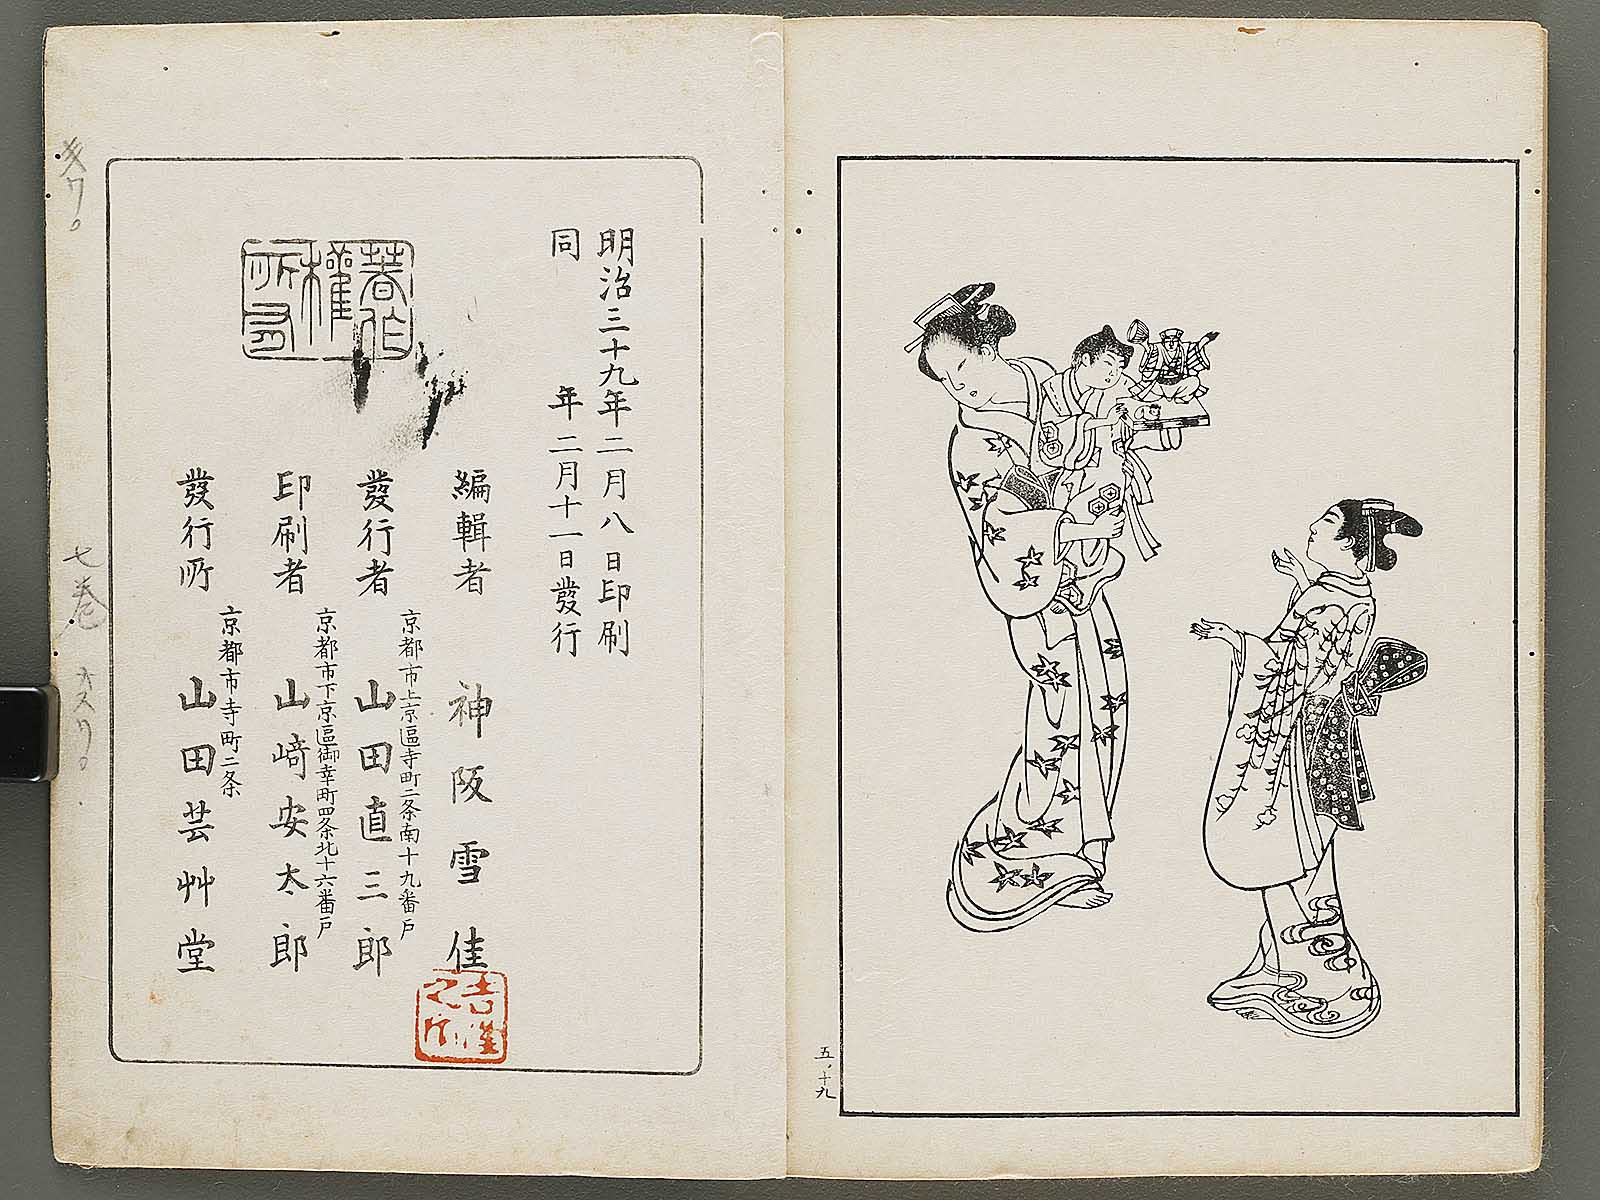 五ノ十九
明治三十九年二月八日印刷
同年二月十一日發行
著作
權
所有
編輯者 神阪雪佳
京都市上京區寺町二条南十九番戸
發行者 山田直三郎
京都市下京區御幸町四条北十六番戸
印刷者 山﨑安太郎
京都市寺町二条
發行所 山田芸艸堂
七巻